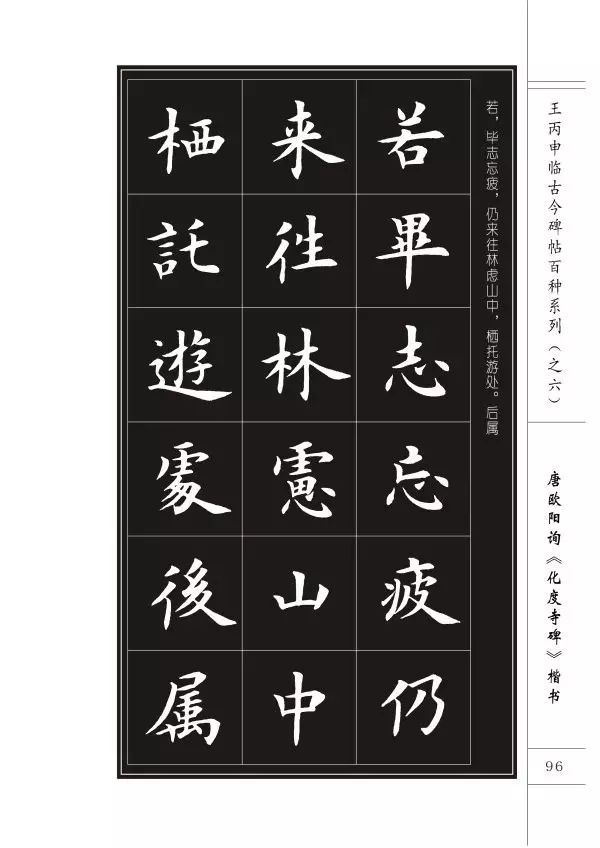 王丙申临古今碑帖百种系列（之六）
唐欧阳询《化度寺碑》楷书
96
若，毕志忘疲，仍来往林虑山中，栖托游处。后属
若畢志忘疲仍
来徃林慮山中
栖託遊處後属